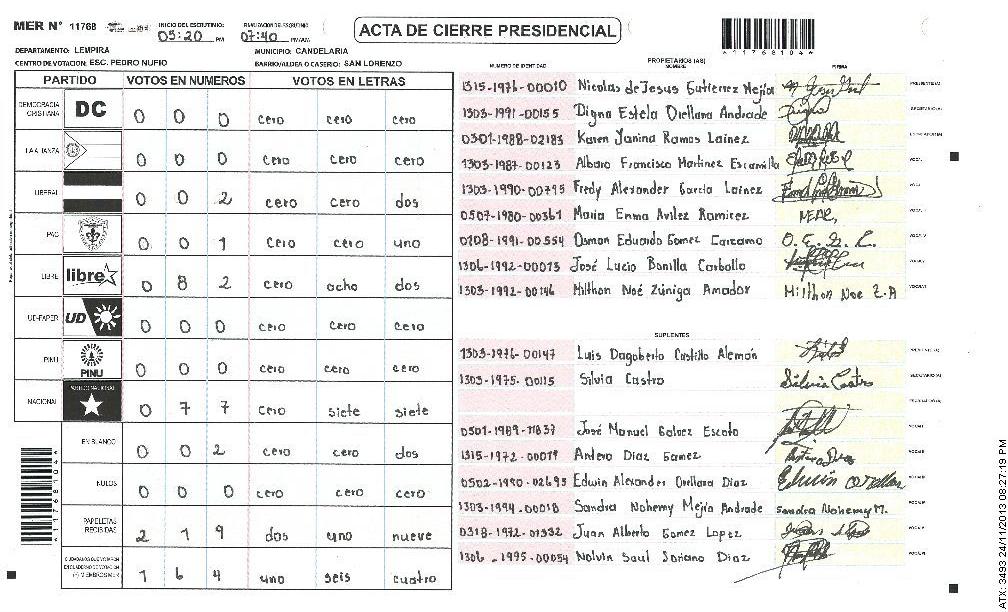 MER N° 11768 INICIO DEL ESCRUTINIO: 05:20 PM FINALIZACION DEL ESCRUTINIO: 07:40 PM/AM ACTA DE CIERRE PRESIDENCIAL
*11768104*
DEPARTAMENTO: LEMPIRA MUNICIPIO: CANDELARIA
CENTRO DE VOTACION: ESC. PEDRO NUFIO BARRIO/ALDEA O CASERIO: SAN LORENZO
PARTIDO VOTOS EN NUMEROS VOTOS EN LETRAS
DEMOCRACIA CRISTIANA DC 0 0 0 cero cero cero
LA ALIANZA 0 0 0 cero cero cero
LIBERAL 0 0 2 cero cero dos
PAC 0 0 1 cero cero uno
LIBRE libre 0 8 2 cero ocho dos
UD-FAPER UD 0 0 0 cero cero cero
PINU PINU 0 0 0 cero cero cero
NACIONAL PARTIDO NACIONAL 0 7 7 cero siete siete
EN BLANCO 0 0 2 cero cero dos
NULOS 0 0 0 cero cero cero
PAPELETAS RECIBIDAS 2 1 9 dos uno nueve
1 6 4 uno seis cuatro
PROPIETARIOS (AS)
NUMERO DE IDENTIDAD NOMBRE FIRMA
1315-1976-00010 Nicolas de Jesus Gutierrez Mejía
1303-1991-00155 Digna Estela Orellana Andrade
0301-1988-02183 Karen Yanina Ramos Lainez
1303-1987-00123 Albaro Francisco Martinez Escamilla
1303-1990-00795 Fredy Alexander Garcia Lainez
0507-1980-00361 Maria Emma Avilez Ramirez MEAR,
0208-1991-00554 Osman Eduardo Gomez Carcamo O. E. G. C.
1306-1992-00073 José Lucio Bonilla Carballo
1303-1992-00146 Milthon Noé Zúniga Amador Milthon Noe Z.A
SUPLENTES
1303-1976-00147 Luis Dagoberto Castillo Alemán
1303-1975-00115 Silvia Castro Silvia Castro
0501-1989-11837 José Manuel Galvez Escoto
1315-1972-00079 Antero Diaz Gamez
0502-1990-02693 Edwin Alexander Orellana Diaz
1303-1994-00018 Sandra Nohemy Mejía Andrade Sandra Nohemy M.
0318-1972-01332 Juan Alberto Gomez Lopez
1306-1995-00054 Nolvin Saul Soriano Diaz
ATX: 3493 24/11/2013 08:27:19 PM